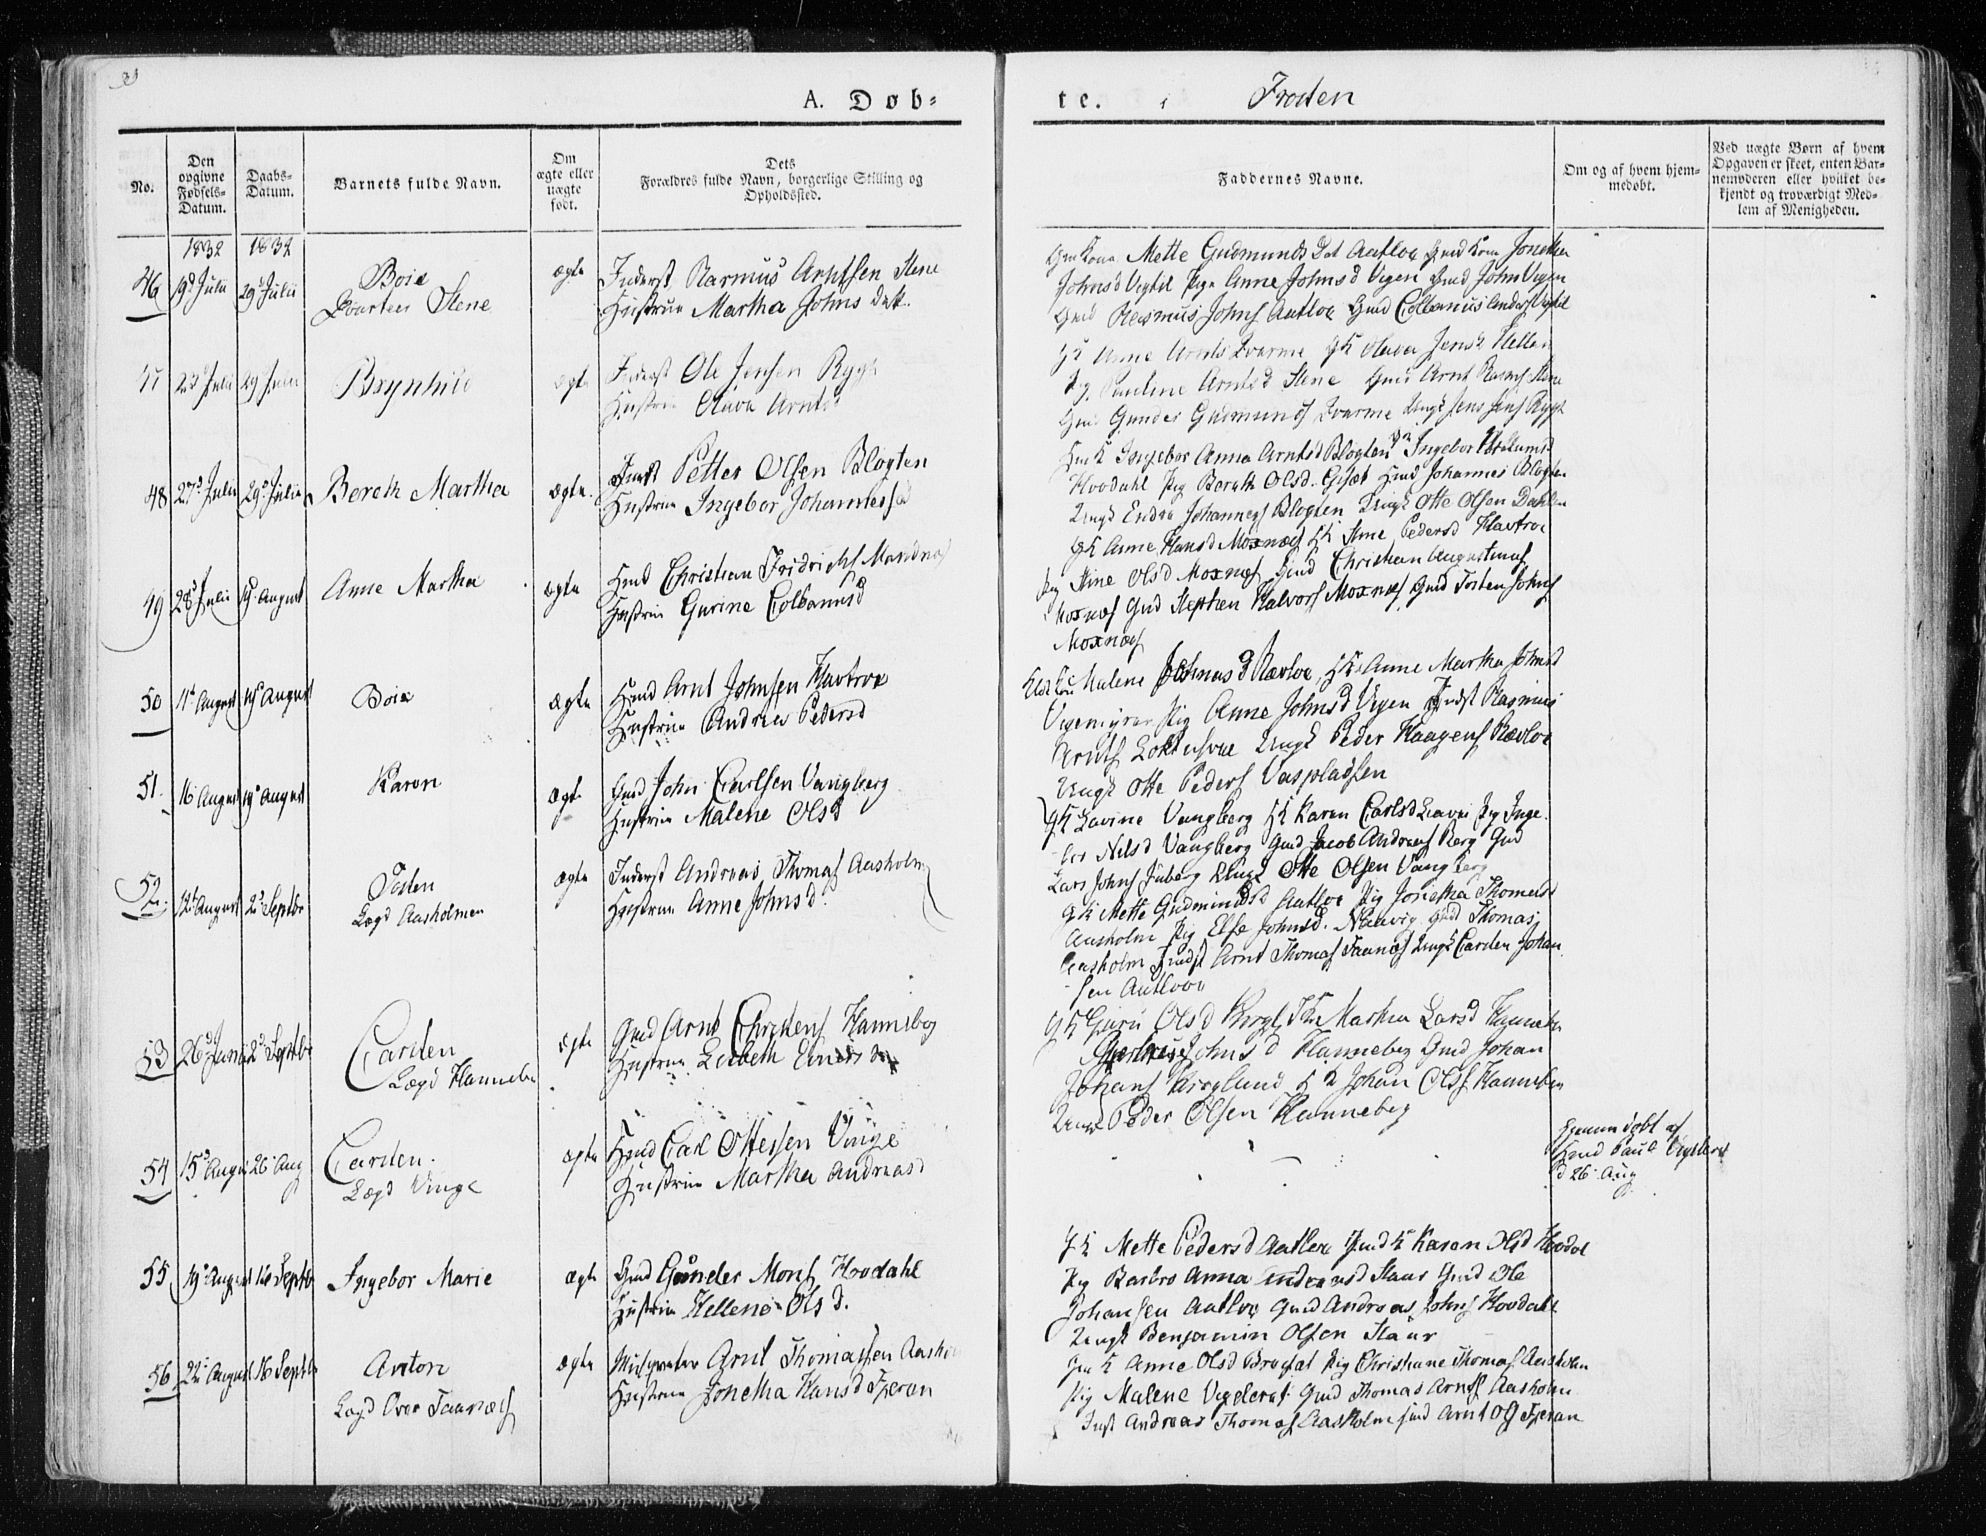 A. Døb-
te. i Frosten
No.
Den opgivne Fødsels-Datum.
Daabs-Datum.
Barnets fulde Navn.
Om ægte eller uægte født.
Dets
Forældres fulde Navn, borgerlige Stilling og
Opholdssted.
Faddernes Navne.
Om og af hvem hjem-
medøbt.
Ved uægte Børn af hvem
Opgaven er skeet, enten Bar-
nemoderen eller hvilket be-
kjendt og troværdigt Med-
lem af Menigheden.
1832 1832
46 19d Julii 29d Julii Boie ægte Inderst Rasmus Arntsen Stene
Stene Hustrue Martha Johns Datt.
Mette Gudmunds Dat Aatloe
Johnsd Vigtil Pige Anne Johnsd Vigen Gmd John Vigen
Gmd Rasmus Johns Aatloe Gmd Colbanus Anders Vigtil
47 23d Julii 29 Julii Brynhild ægte Inderst Ole Jensen Rygh
Hustrue Olava Arntsd
Anne Arnts Qvarme GK Olava Jensd Hellan
Pig. Pauline Arntsd Stene Gmd Arnt Rasms Stene
Gmd Gunder Gudmunds Qvarme Ungk Jens Jens Rygh
48 27d Julii 29d Julii Bereth Martha ægte Petter Olsen Blogten
Hustrue Ingebor Johannesd
Ingebor Anna Arntsd Blogten Ingebor
Hovdahl Pig Bereth Olsd. Hmd Johannes Blogten
Ungk Endre Johannes Blogten Ungk Otte Olsen Dahlen
49 28d Julii 19. August Anne Martha ægte Hmd Christian Fridrichs Moxnæs
Hustrue Gurine Colbanusd
GK Anne Hansd Moxnæs HK Stine Pedersd Havtroe
Pig Stine Olsd Moxnæs Gmd Christian Augustinus
Moxnæs Gmd Stephen Halvors Moxnæs Gmd Tosten Johns
Moxnæs
50 11d August 19d August Boie ægte Hmd Arnt Johnsen Havtroe
Hustrue Andrea Pedersd
Malene Johnasd Rævloe, HK Anne Martha Johnsd
Vigenmyrer Pig Anne Johnsd Vigen Indst Rasmus
Arnts Ungk Peder Haagens Rævloe
Ungk Otte Peders Vaspladsen
51. 16 August 19d August Karen ægte Gmd John Carlsen Vangberg
Hustrue Malene Olsd
GK Lavine Vangberg HK Karen Carlsd Pig Inge-
bor Nilsd Vangberg Gmd Jacob Andreas Berg Gmd
Lars Johns Juberg Ungk Otte Olsen Vangberg
52. 12d August 2d Septbr Tosten ægte Inderst Andreas Thomas Aasholm
Lægd Aasholmen Hustrue Anne Johnsd.
GK Mette Gudmundsd Aatloe Pig Jonetha Thomasd
Aasholm Pig Else Johnsd. Naavig Gmd Thomas
Aasholm Indst Arnt Thomas Faanæs Ungk Carsten Johan-
sen Aatloe
53 26d Junii 2d Septbr Carsten ægte Gmd Arnt Christens Hanneberg
Lægd Hanneberg Hustrue Lisbeth
GK Guru Olsd Martha Larsd Hanneberg
Johnsd Hanneberg Gmd Johan
Johans Berglund Johan Ols Hanneberg
Ungk Peder Olsen Hanneberg
54 15d August 26. Aug Carsten. ægte Hmd Carl Ottesen Vinge
Lægd Vinge Hustrue Martha Andreasd
Hjemmedøbt af
Hmd Paul
d 26. Aug
55 19d August 16 Septbr Ingebor Marie ægte Gmd Gunder Mons Hovdahl
Hustrue Hellene Olsd.
GK Mette Pedersd Aatloe HK Karen Olsd Hovdal
Pig Barbro Anna Andreasd Staur Gmd Ole
Johansen Aatloe Gmd Andreas Johns Hovdahl
Ungk Benjamin Olsen Staur
56 22. August 16 Septbr Anton ægte Arnt Thomassen Aasholm
Lægd Over Faanæs Hustrue Jonetha Hansd Fjeran
Anne Olsd Pig Christiane Thomas Aasholm
Pig Malene Vigderas Gmd Thomas Arnts Aasholm
Inst Andreas Thomas Aasholm Gmd Arnt Ols Fjeran